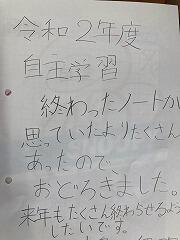 令和2年度
自主学習
終わったノートが
思っていたよりたくさん
あったので、
おどろきました。
来年もたくさん終わらせるよう
したいです。